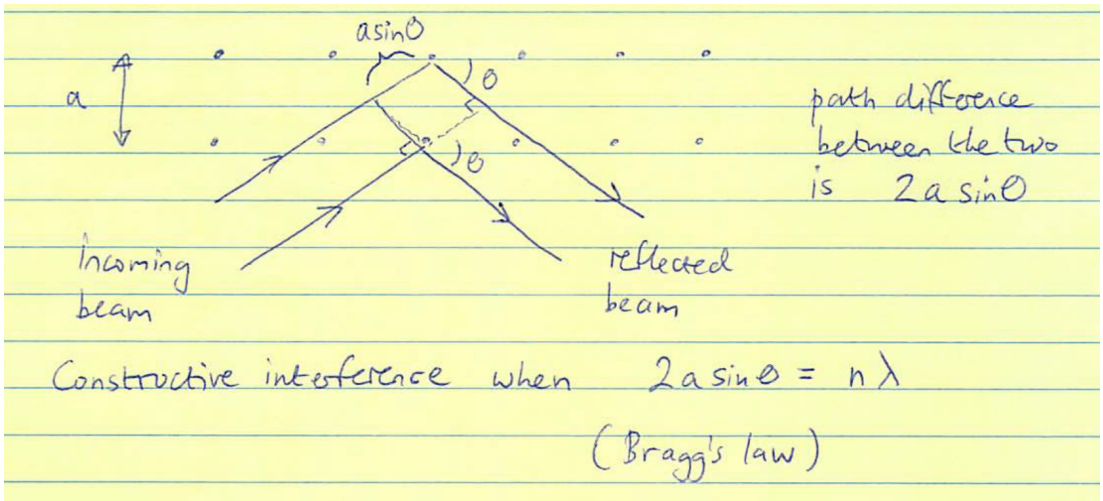 a sinθ
θ
a
path difference
between the two
is 2a sinθ
θ
Incoming
beam
reflected
beam
Constructive interference when 2a sinθ = nλ
(Bragg's law)